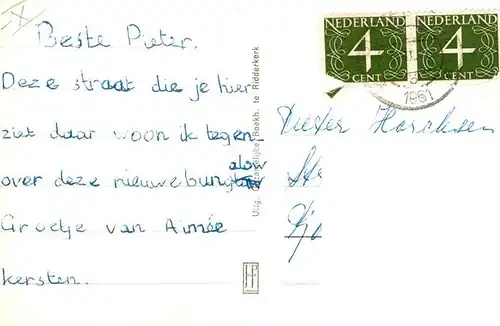 Beste Pieter.
Deze straat die je hier
ziet daar woon ik tegen-
over deze nieuwe bungalow
Groetje van Aimée
kersten.
NEDERLAND
4
CENT
NEDERLAND
4
CENT
1961
Uitg. Chr. Boekh. te Ridderkerk
Pieter